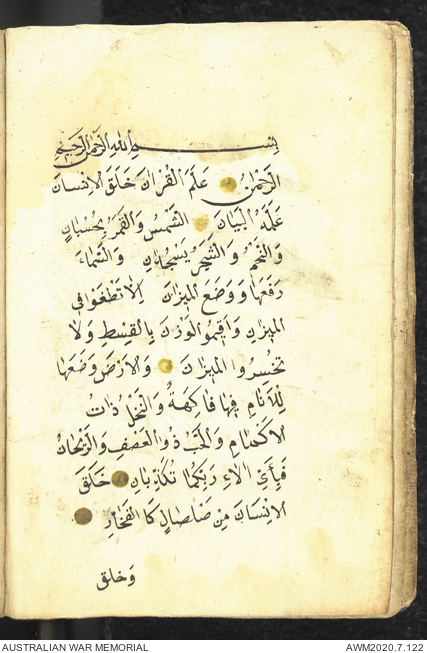 بسم الله الرحمن الرحيم
الرحمن علم القران خلق الانسان
علمه البيان الشمس والقمر بحسبان
والنجم والشجر يسجدان والسماء
رفعها ووضع الميزان الا تطغوا في
الميزان واقيموا الوزن بالقسط ولا
تخسروا الميزان والارض وضعها
للانام فيها فاكهة والنخل ذات
الاكمام والحب ذو العصف والريحان
فبأي الاء ربكما تكذبان خلق
الانسان من صلصال كالفخار
وخلق
AUSTRALIAN WAR MEMORIAL
AWM2020.7.122